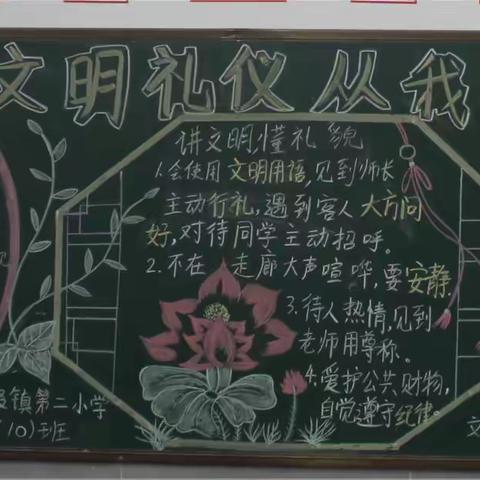 文明礼仪从我
讲文明,懂礼貌
1.会使用文明用语,见到师长
主动行礼,遇到客人大方问
好,对待同学主动招呼。
2.不在走廊大声喧哗,要安静.
3.待人热情,见到
老师用尊称。
4.爱护公共财物,
自觉遵守纪律。
镇第二小学
(10)班
文